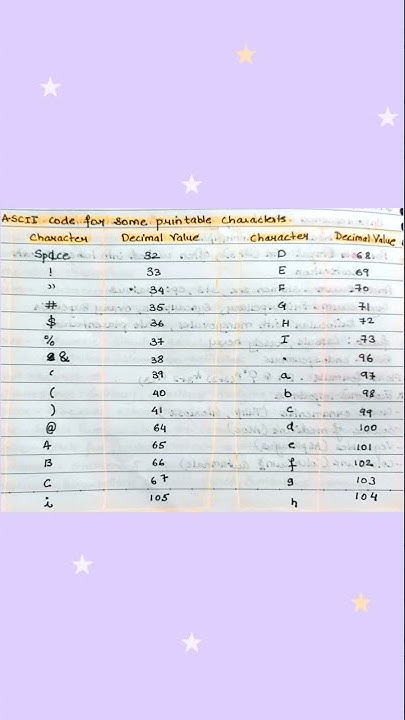 ASCII code for some printable Characters.
Character Decimal Value Character Decimal Value
Space 32 D 68
! 33 E 69
" 34 F 70
# 35 G 71
$ 36 H 72
% 37 I 73
& 38 • 96
‘ 39 a 97
( 40 b 98
) 41 c 99
@ 64 d 100
A 65 e 101
B 66 f 102
C 67 g 103
i 105 h 104